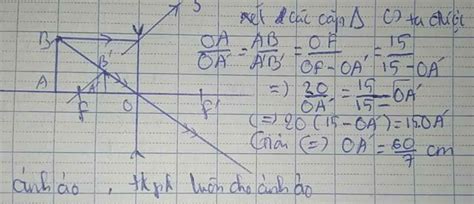 xét các cặp Δ ta được
OA/OA' = AB/A'B' = OF/OF-OA' = 15/15-OA'
=> 20/OA' = 15/15-OA'
(=) 20(15-OA') = 15OA'
Giải (=) OA' = 60/7 cm
S
B
B'
A
A'
F
O
F'
ảnh ảo, tkpk luôn cho ảnh ảo